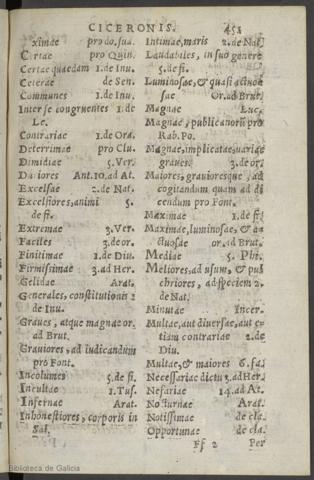 CICERONIS. 451
xīmae pro do. sua.
Certae pro Quin.
Certae quaedam 1. de Inu.
Ceterae de Sen.
Communes 1. de Inu.
Inter se congruentes 1. de
Le.
Contrariae 1. de Ora.
Deterrimae pro Clu.
Dimidiae 5. Ver.
Duriores Ant. 10. ad At.
Excelsae 2. de Nat.
Excelsiores, animi 5.
de fi.
Extremae 3. Ver.
Faciles 3. de or.
Finitimae 1. de Diu.
Firmissimae 3. ad Her.
Gelidae Arat.
Generales, constitutionis 2
de Inu.
Graues, atque magnae or.
ad Brut.
Grauiores, ad iudicandum
pro Font.
Incolumes 5. de fi.
Incultae 1. Tus.
Infernae Arat.
Inhonestiores, corporis in
Sal.
Intimae, maris 2. de Nat.
Laudabiles, in suo genere
5. de fi.
Luminosae, & quasi actuo
sae Or. ad Brut.
Magnae Luc.
Magnae, publicanorū pro
Rab. Po.
Magnae, implicatae, uariae
graues. 3. de or.
Maiores, grauioresque, ad
cogitandum quam ad di
cendum pro Font.
Maximae 1. de fi.
Maximae, luminosae, & a
ctuosae or. ad Brut.
Mediae 5. Phi.
Meliores, ad usum, & pul
chriores, ad speciem 2.
de Nat.
Minutae Incer.
Multae, aut diuersae, aut e
tiam contrariae 2. de
Diu.
Multae, & maiores 6. fa.
Necessariae dictu 3. ad Her.
Nefariae 14. ad At.
Nocturnae Arat.
Notissimae de cla.
Opportunae de cla.
Ff 2 Per
Biblioteca de Galicia